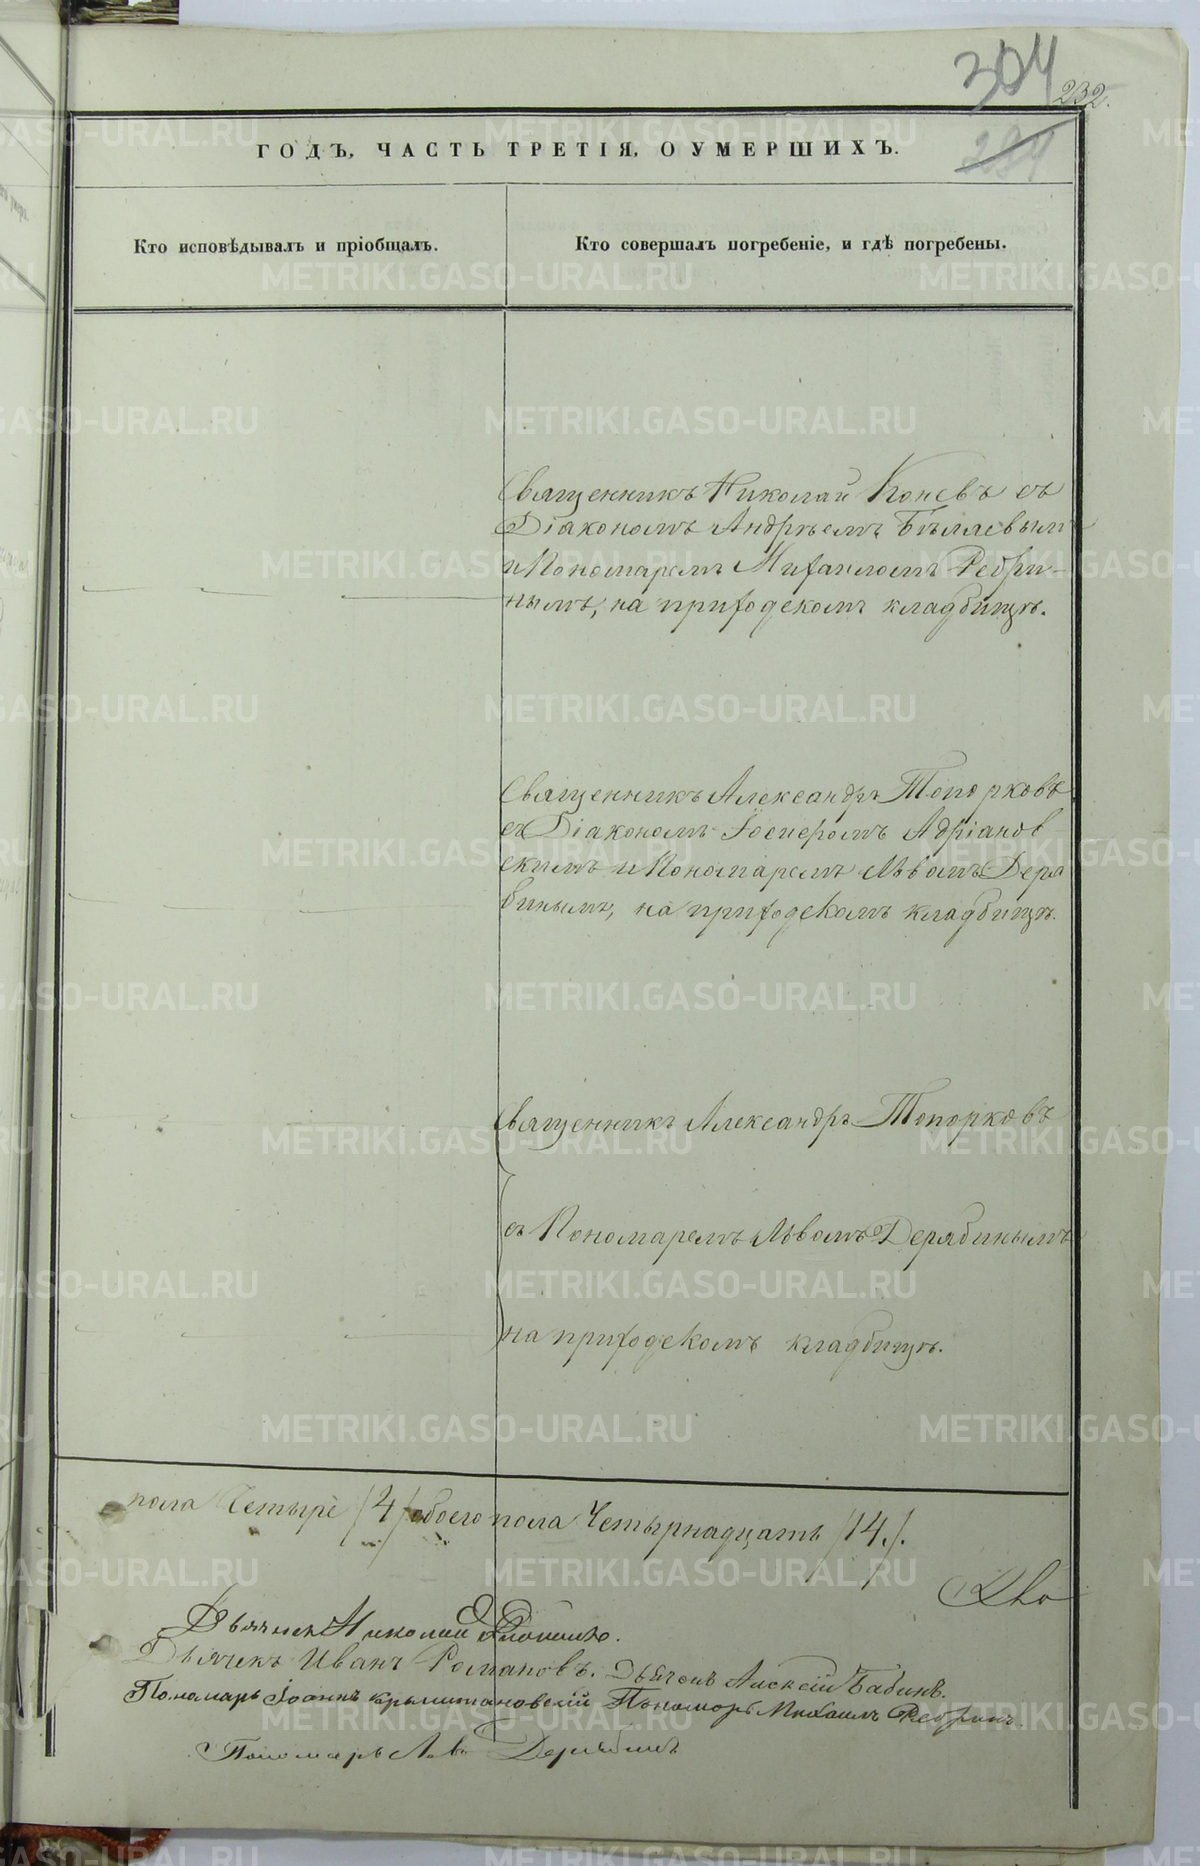 304
232.
294
ГОДЪ, ЧАСТЬ ТРЕТІЯ, О УМЕРШИХЪ.
Кто исповѣдывалъ и пріобщалъ.
Кто совершалъ погребеніе, и гдѣ погребены.
Священникъ Николай Коневъ съ
Діакономъ Андреемъ Бѣляевымъ
и Пономаремъ Михаиломъ Ребри-
нымъ, на приходскомъ кладбищѣ.
Священникъ Александръ Топорковъ
съ Діакономъ Іосифомъ Адріанов
скимъ и Пономаремъ Львомъ Деря
бинымъ, на приходскомъ кладбищѣ.
Священникъ Александръ Топорковъ
съ Пономаремъ Львомъ Дерябинымъ
на приходскомъ кладбищѣ.
пола Четыре /4/ обоего пола Четырнадцать /14./.
Дьячекъ Николай
Дьячекъ Иванъ Романовъ. Дьячекъ Алексій Бабинъ.
Пономарь Іоаннъ Крыжановскій Пономарь Михаилъ Ребринъ.
Пономарь Левъ Дерябинъ
METRIKI.GASO-URAL.RU